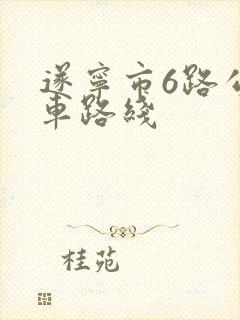 遂寧市6路公
車路綫
桂苑